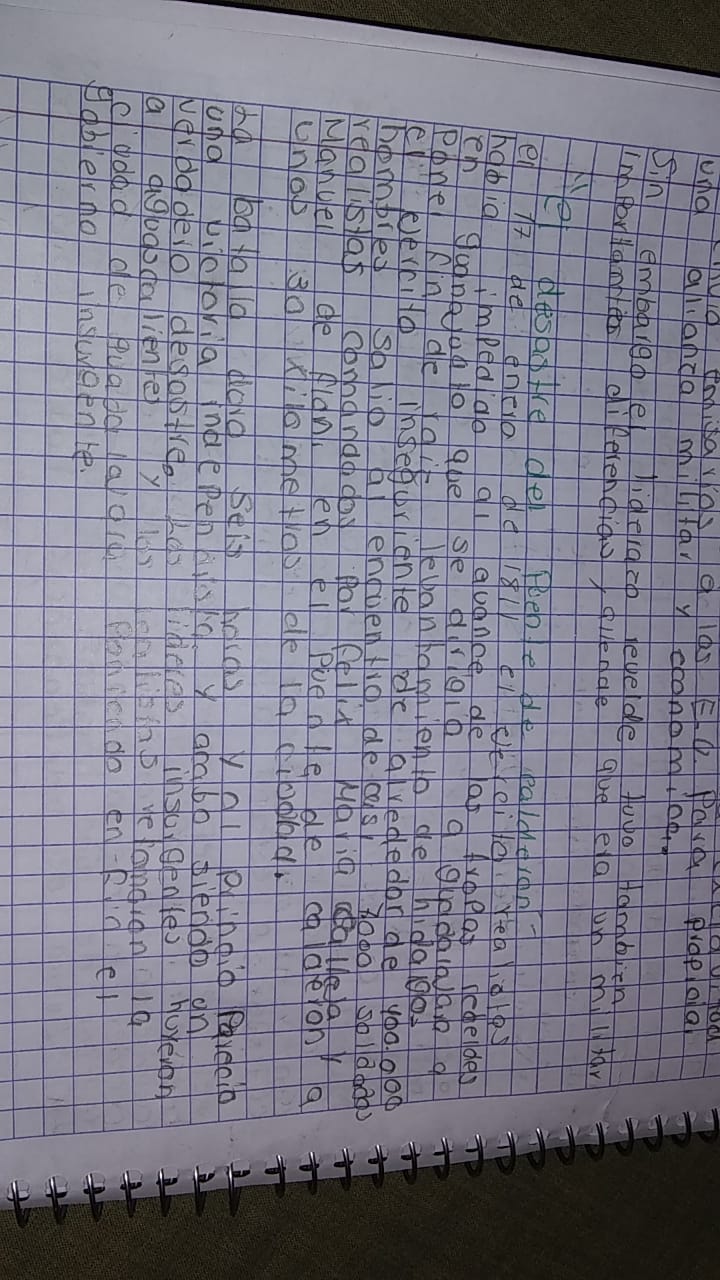 emisarios a las E.U. para
una alianza militar y economica.
Sin embargo el liderazo reverde tubo tambien
importantes diferencias, allende que era un militar
"el desastre del Pente de calderon"
el 17 de enero de 1811 el ejercito realistas
habia impedido al avance de las tropas rebeldes
en guanajuato que se dirigia a guadalajara a
poner fin de raiz levantamiento de hidalgo.
el ejercito inseguriente de alrededor de 400.000
hombres salio al encuentro de casi 7000 soldados
realistas comandados por Felix Maria calleja y
Manuel de flon, en el puente de calderon a
unos 30 kilometros de la ciudad.
La batalla duro seis horas y al principio parecia
una victoria independista y acabo siendo un
verdadero desastre, los lideres insurgentes huyeron
a aguascalientes y los realistas
ciudad de guadalajara poniendo en fin el
gobierno insurgente.